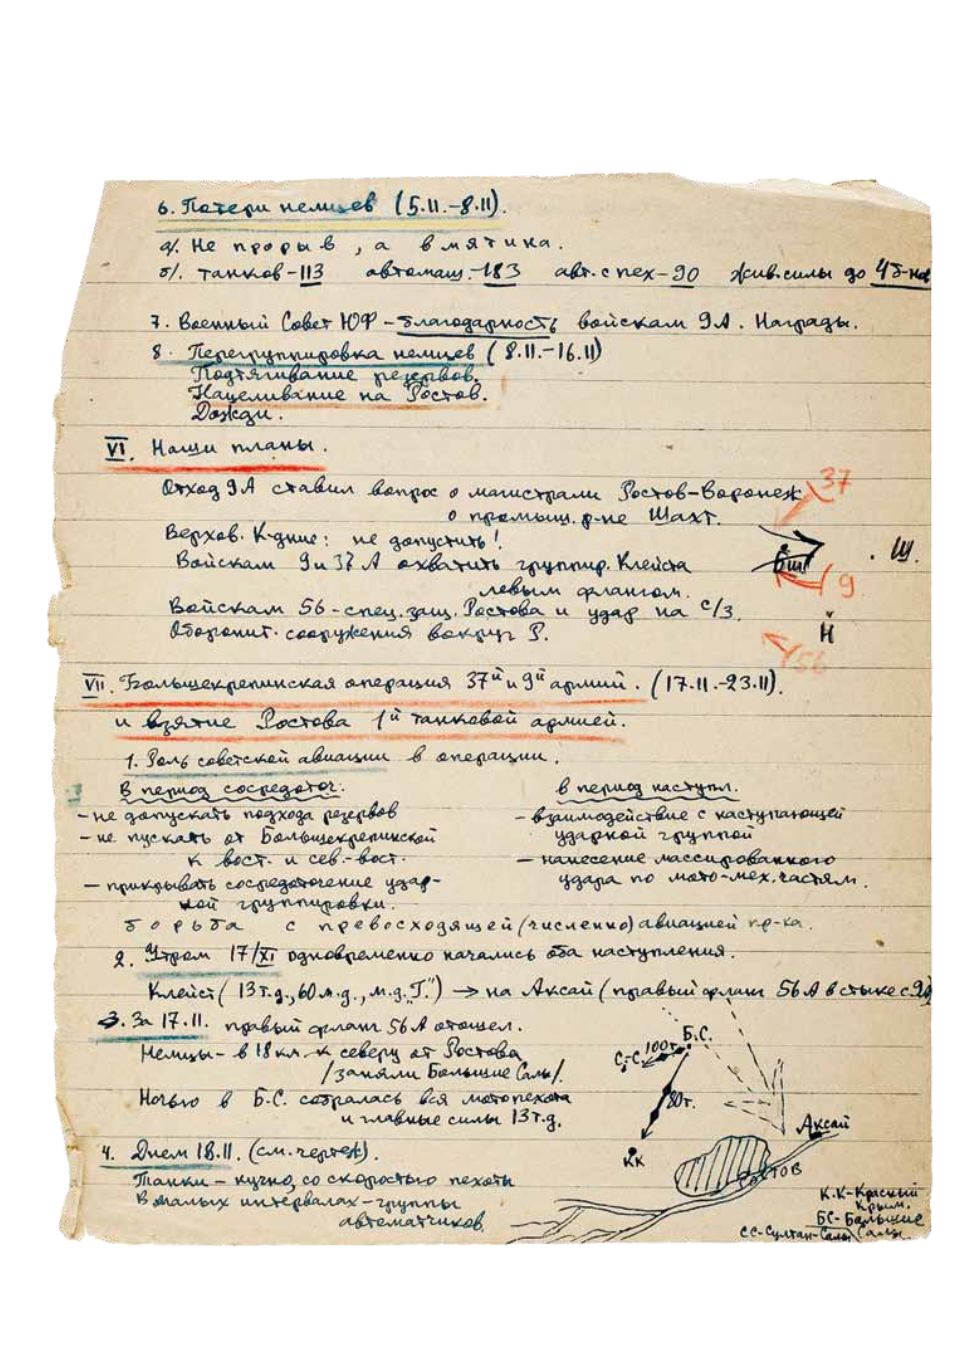 6. Потери немцев (5.11.-8.11).
а/. Не прорыв, а вмятина.
б/. танков-113 автомаш.-183 авт. с пех-90 жив.силы до 4 б-нов
7. Военный Совет ЮФ - благодарность войскам 9А. Награды.
8. Перегруппировка немцев (8.11.-16.11)
Подтягивание резервов.
Нацеливание на Ростов.
Дожди.
VI. Наши планы.
Отход 9А ставил вопрос о магистрали Ростов-Воронеж
о промыш. р-не Шахт.
37
Верхов. К-дние: не допустить!
Войскам 9 и 37 А охватить группир. Клейста
левым флангом.
Щ.
9
Войскам 56 - спец. защ. Ростова и удар на с/З.
Оборонит. сооружения вокруг Р.
Н
56
VII. Большекрепинская операция 37й и 9й армий. (17.11.-23.11).
и взятие Ростова 1й танковой армией.
1. Роль советской авиации в операции.
В период сосредоточ:
- не допускать подхода резервов
- не пускать от Большекрепинской
к вост. и сев.-вост.
- прикрывать сосредоточение удар-
ной группировки.
в период наступл.
- взаимодействие с наступающей
ударной группой
- нанесение массированного
удара по мото-мех. частям.
борьба с превосходящей (численно) авиацией пр-ка.
2. Утром 17/XI одновременно начались оба наступления.
Клейст (13 т.д., 60 м.д., м.д. "Г.") → на Аксай (правый фланг 56А в стыке с 9А)
3. За 17.11. правый фланг 56А отошел.
Немцы - в 18 км. к северу от Ростова
/заняли Большие Салы/.
Ночью в Б.С. собралась вся мотопехота
и главные силы 13 т.д.
4. Днем 18.11. (см. чертеж).
Танки - кучно, со скоростью пехоты
В малых интервалах - группы
автоматчиков.
Б.С.
С.-С.
100т.
80т.
Аксай
КК
Ростов
К.К-Красный
Крым.
БС-Большие
Салы.
СС-Султан-Салы